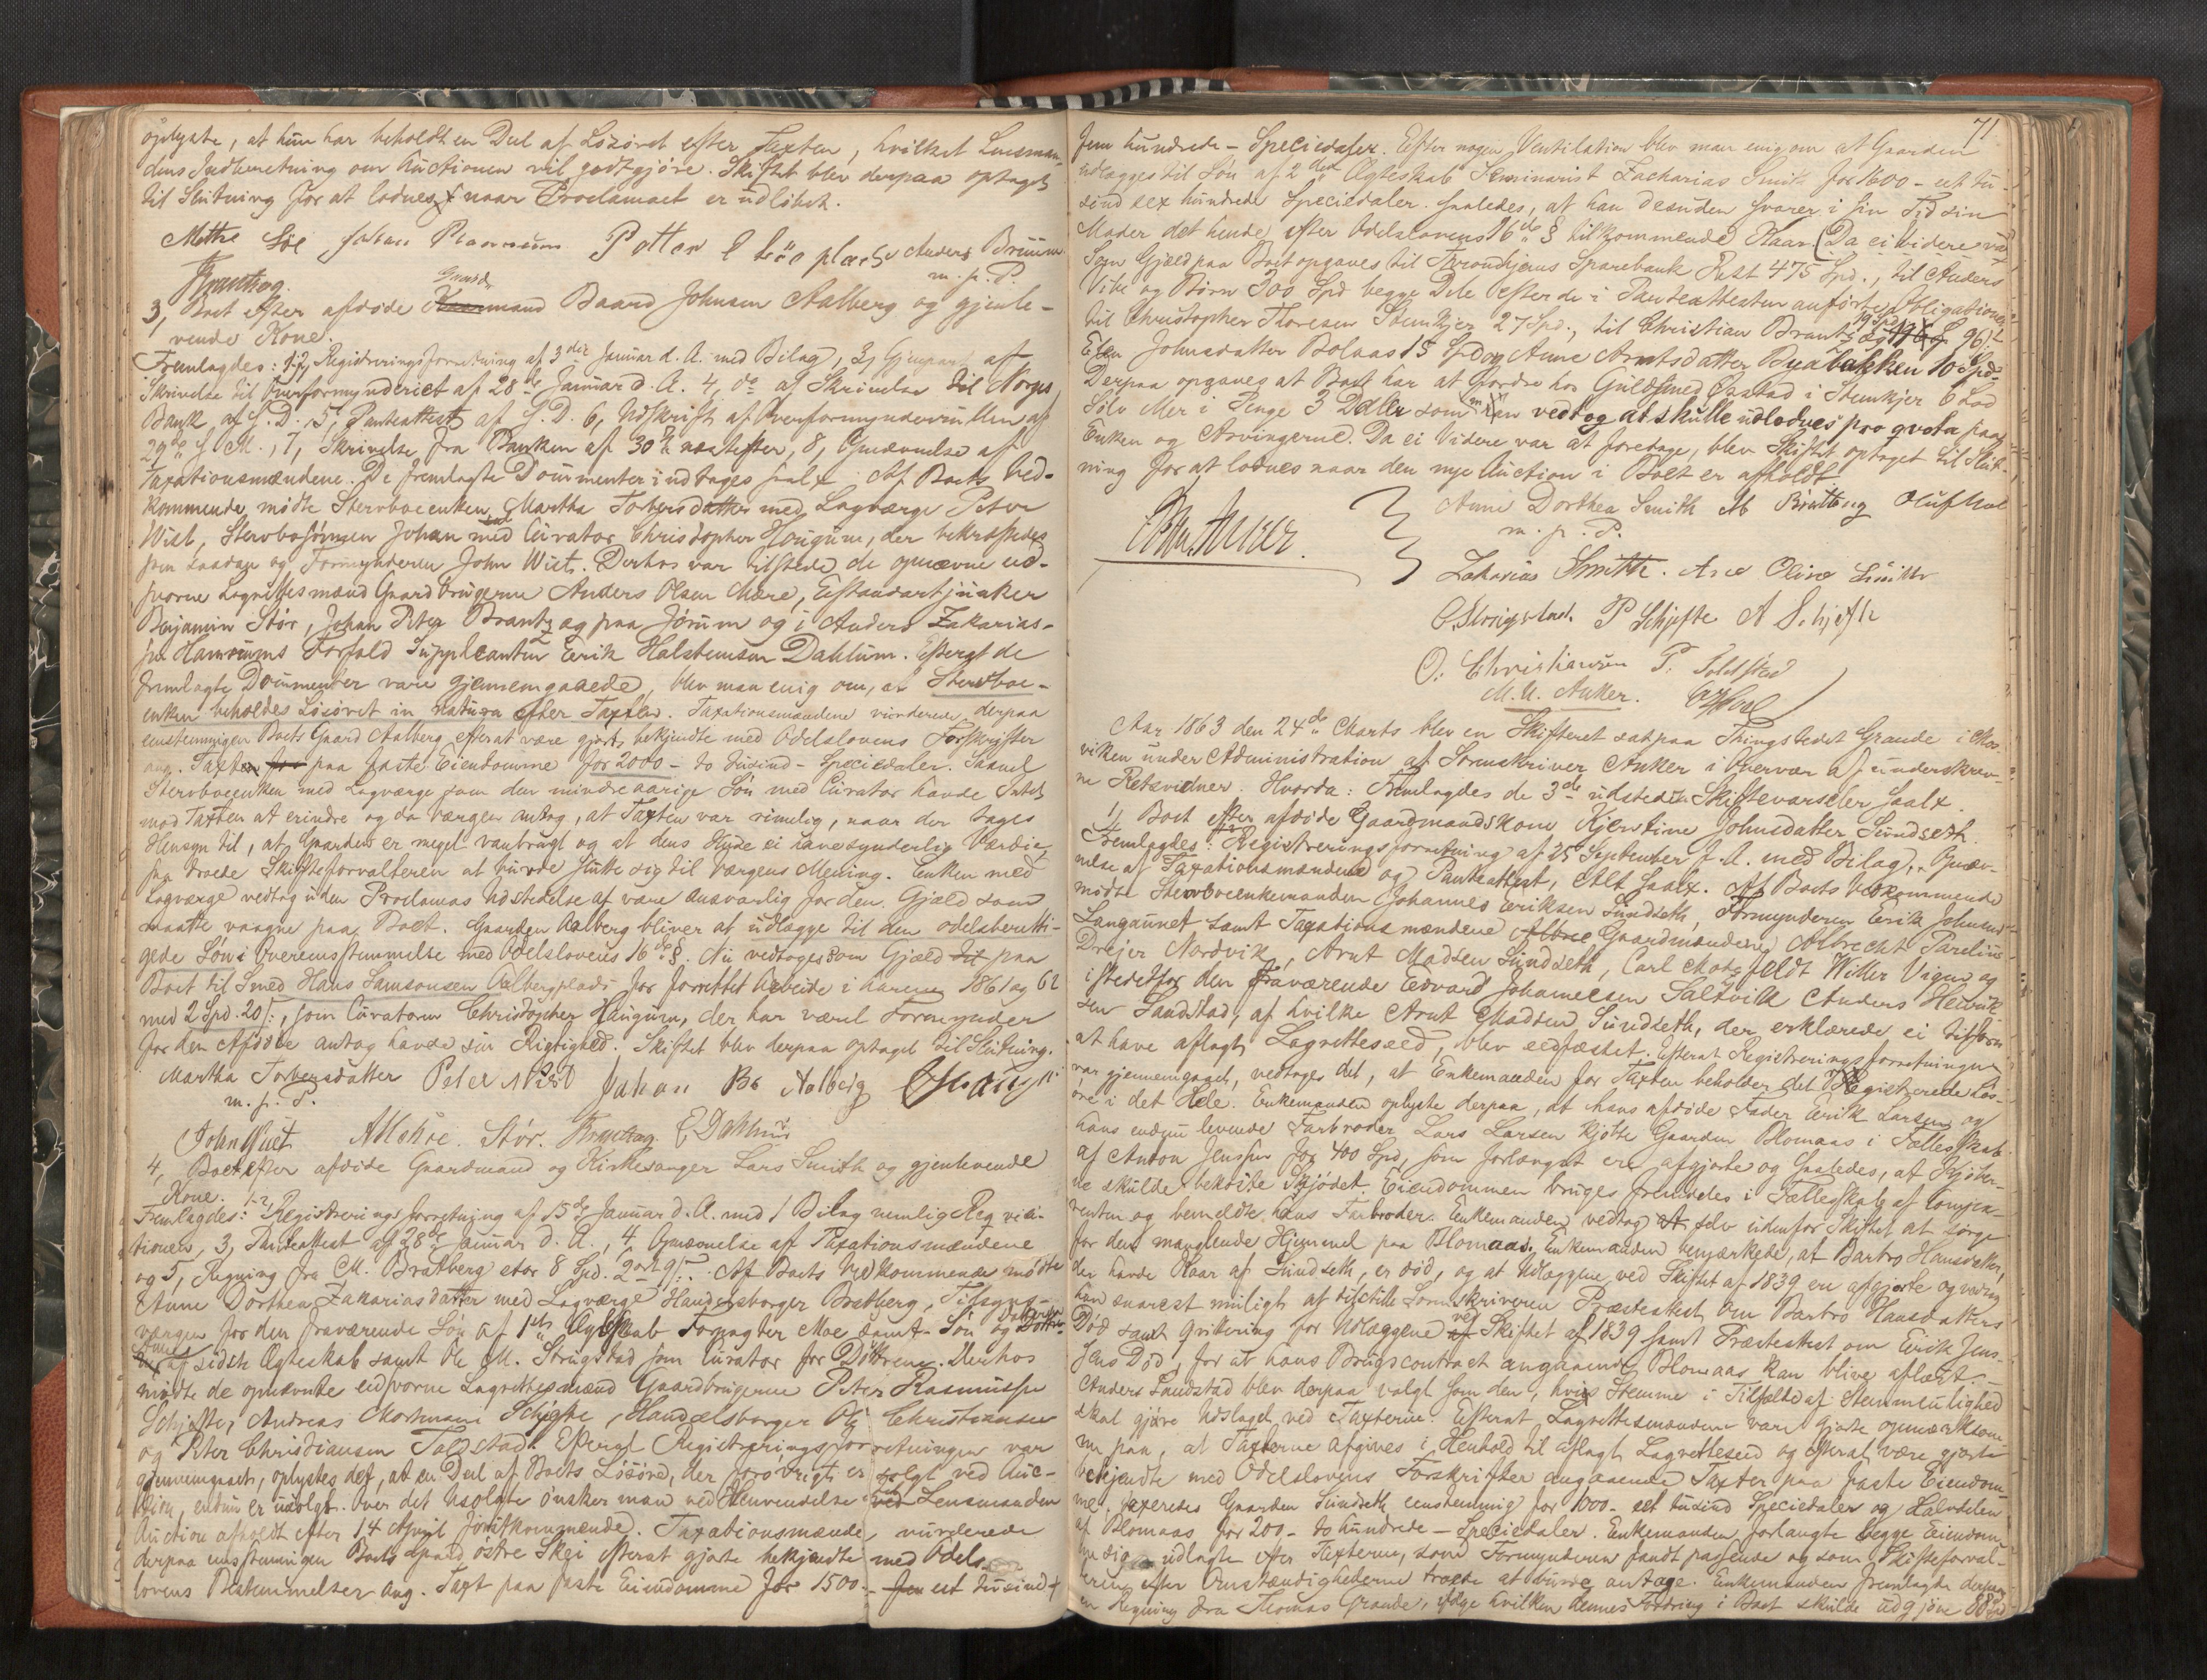 oplyste, at hun har beholdt en Deel af Løsøret efter Taxten, hvilket Lensman-
dens Indberetning om Auctionen vil godtgjøre. Skiftet blev derpaa optaget
til Slutning for at loddes naar Proclamaet er udløbet.
Mette Løe Johan Petter Anders Brem
m. p. P.
Brantzæg.
3, Boet efter afdøde Gaardmand Baard Johnsen Aalberg og gjenle-
vende Kone.
Fremlagdes: 1-2, Registreringsforretning af 3die Januar d. A. med Bilag, 3, Gjenpart af
Skrivelse til Overformynderiet af 28de Januar d. A. 4, do af Skrivelse til Norges
Bank af s. D. 5, Panteattest af s. D. 6, Udskrift af Overformynderrullen af
29de s. M., 7, Skrivelse fra Banken af 30te næstefter, 8, Opnævnelse af
Taxationsmændene. De fremlagte Documenter indtages saal. Af Boets Ved-
kommende mødte Sterboenken Martha Torbersdatter med Laugværge Peter
Wist, Sterbosønnen Johan med Curator Christopher Haugum, der bekræftedes
som saadan og Formynderen John Wist. Derhos var tilstede de opnævnte eed-
svorne Lagrettesmænd Gaardbrugerne Anders Olsen Mære, Exstandartjunker
Benjamin Stør, Johan Peter Brantzæg paa Jørum og i Anders Zakarias-
sen Hamrums Forfald Suppleanten Erik Halstensen Dahlum. Efterat de
fremlagte Documenter vare gjennemgaaede, blev man enig om, at Sterboe-
enken beholdes Løsøret in natura efter Taxten. Taxationsmændene vurderede derpaa
eenstemmigen Boets Gaard Aalberg efterat være gjorte bekjendte med Odelslovens Forskrifter
ang. Taxten for paa faste Eiendomme for 2000 - to tusind - Speciedaler. Saavel
Sterboeenken med Lagværge som den mindreaarige Søn med Curator havde Intet
mod Taxten at erindre og da Værgen antog, at Taxten var rimelig, naar der tages
Hensyn til, at Gaarden er meget vanbrugt og at dens Huse ei have synderlig Værdie,
saa troede Skifteforvalteren at burde slutte sig til Værgens Mening. Enken med
Lagværge vedtog uden Proclamas Udstedelse at være ansvarlig for den Gjæld som
maatte vaagne paa Boet. Gaarden Aalberg bliver at udlægge til den odelsberetti-
gede Søn i Overensstemmelse med Odelslovens 16de §. Nu vedtoges som Gjæld til paa
Boet til Smed Hans Samsonsen Aalbergplads for forrettet Arbeide i Aarene 1861 og 62
med 2 Spd. 20 s:, som Curatoren Christopher Haugum, der har været Formynder
for den Afdøde antog havde sin Rigtighed. Skiftet blev derpaa optaget til Slutning.
Martha Torbersdatter Peter Wist Johan Bs Aalberg
m. p. P.
John Wist AMære. Stør. Brantzæg. E Dahlum
4, Boet efter afdøde Gaardmand og Kirkesanger Lars Smith og gjenlevende
Kone.
Fremlagdes: 1-2, Registreringsforretning af 15de Januar d. A. med 1 Bilag nemlig Reqvisi-
tionen, 3, Panteattest af 28de Januar d. A., 4 Opnævnelse af Taxationsmændene
og 5, Regning fra M. Bratberg stor 8 Spd. 2 ort 9 s:. Af Boets Vedkommende mødte
Anne Dorthea Zakariasdatter med Lagværge Handelsborger Bratberg, Tilsyns-
værgen for den fraværende Søn af 1ste Ægteskab Forpagter Moe samt Søn og Døttre-
ne af sidste Ægteskab samt Ole M. Strugstad som Curator for Døttrene. Derhos
mødte de opnævnte eedsvorne Lagrettesmænd Gaardbrugerne Peter Rasmussen
Schjefte, Andreas Mortensen Schjefte, Handelsborger Ole Christiansen
og Peter Christiansen Foldstad. Efterat Registreringsforretningen var
gjennemgaaet, oplystes det, at en Deel af Boets Løsøre, der forøvrigt er solgt ved Auc-
tion, endnu er usolgt. Over det Usolgte ønsker man ved Henvendelse til Lensmanden
Auction afholdt efter 14 April førstkommende. Taxationsmændene vurderede
derpaa eenstemmigen Boets Gaard østre Skei efterat gjorte bekjendte med Odels-
lovens Bestemmelser ang. Taxt paa faste Eiendomme for 1500 - fem eet tusind
71
fem hundrede - Speciedaler. Efter nogen Ventilation blev man enig om at Gaarden
udlægges til Søn af 2det Ægteskab Seminarist Zacharias Smith for 1600 - eet tu-
sind sex hundrede Speciedaler. saaledes, at han desuden svarer i sin Tid sin
Moder det hende efter Odelslovens 16de § tilkommende Kaar. (Da ei videre var
Som Gjæld paa Boet opgaves til Throndhjems Sparebank Rest 475 Spd., til Anders
Vibe og Børn 300 Spd begge Dele efter de i Panteattesten anførte Obligationer
til Christopher Thoresen Steenkjer 27 Spd., til Christian Brantzæg 96 s
Johnsdatter Bolaas 15 Spd og Anne Arntsdatter Byabakken 10 Spd.
Derpaa opgaves at Boet har at fordre hos Guldsmed Østad i Steenkjer 6 Lod
Sølv eller i Penge 3 Daler som man vedtog at skulle udloddes pro qvota paa
Enken og Arvingerne. Da ei Videre var at foretage, blev Skiftet optaget til Slut-
ning for at loddes naar den nye Auction i Boet er afholdt.
Anne Dorthea Smith M Bratberg Oluf Moe
m. p. P.
Zakarias Smith. Ane Oline Smith
O. Strugstad. P Schjefte A Schjefte
O. Christiansen P. Foldstad
M. U. Anker.
Aar 1863 den 24de Marts blev en Skifteret sat paa Thingstedet Grande i Mos-
viken under Administration af Sorenskriver Anker i Overvær af underskrev-
ne Retsvidner. Hvorda: Fremlagdes de 3de udstedte Skiftevarseler saal.
1, Boet efter afdøde Gaardmandskone Kjerstine Johnsdatter Sundseth.
Fremlagdes: Registreringsforretning af 25 September f. A. med Bilag, Opnæv-
nelse af Taxationsmændene og Panteattest, Alt saal. Af Boets Vedkommende
mødte Sterboeenkemanden Johannes Eriksen Sundseth, Formynderen Erik Johnsen
Langaunet samt Taxationsmændene Gaardmændene Albrecht Parelius
Drejer Nordvik, Arnt Madsen Sundseth, Carl Motzfeldt Willer Vigen og
istedetfor den fraværende Edvard Johannesen Saltvik Anders Henrik-
sen Sandstad, af hvilke Arnt Madsen Sundseth, der erklærede ei tilforn
at have aflagt Lagrettesed, blev eedfæstet. Efterat Registreringsforretningen
var gjennemgaaet, vedtoges det, at Enkemanden for Taxten beholder det Registrerede Løs-
øre i det Hele. Enkemanden oplyste derpaa, at hans afdøde Fader Erik Larsen og
hans endnu levende Farbroder Lars Larsen kjøbte Gaarden Blomaas i Fælleskab
af Anton Jenssen for 400 Spd, som forlængst ere afgjorte og saaledes, at Kjøber-
ne skulde bekoste Skjødet. Eiendommen bruges fremdeles i Fælleskab af Compa-
renten og bemeldte hans Farbroder. Enkemanden vedtog selv udenfor Skiftet at sørge
for den manglende Hjemmel paa Blomaas. Enkemanden bemærkede, at Barbro Hansdatter,
der havde Kaar af Sundseth, er død, og at Udlæggene ved Skiftet af 1839 ere afgjorte og vedtog
han snarest muligt at tilstille Sorenskriveren Præsteattest om Barbro Hansdatters
Død samt Qvittering for Udlæggene ved Skiftet af 1839 samt Præsteattest om Erik Jens-
sens Død, for at hans Brugscontract angaaende Blomaas kan blive aflæst.
Anders Sandstad blev derpaa valgt som den, hvis Stemme i Tilfælde af Stemmeulighed
skal gjøre Udslaget ved Taxterne. Efterat Lagrettesmændene vare gjorte opmærksom-
me paa, at Taxterne afgives i Henhold til aflagt Lagretteseed og efterat være gjorte
bekjendte med Odelslovens Forskrifter angaaende Taxter paa faste Eiendom-
me. taxeredes Gaarden Sundseth eenstemmig for 1000 - eet tusind Speciedaler og Halvdelen
af Blomaas for 200 - to hundrede - Speciedaler. Enkemanden forlangte begge Eiendom-
me sig udlagte efter Taxterne, som Formynderen fandt passende og som Skifteforval-
eren efter Omstændighederne troede at burde antage. Enkemanden fremlagte derpaa
en Regning fra Thomas Grande, ifølge hvilken dennes Fordring i Boet skulde udgjøre 88 Spd